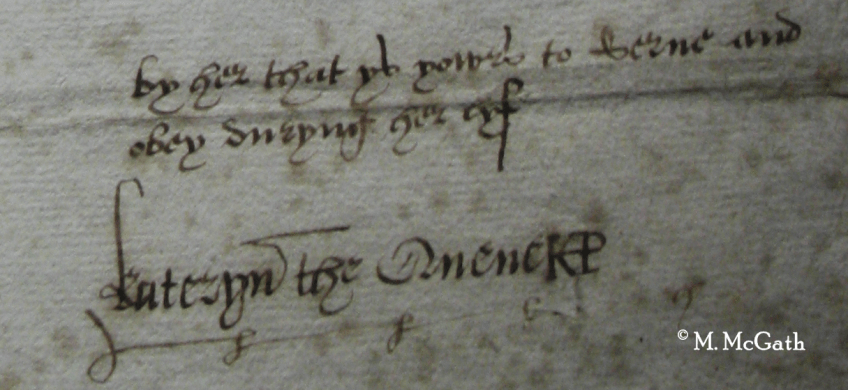 by her that ys yowrs to serue and
obey duryng her lyf
Kateryn the Quene KP
© M. McGath